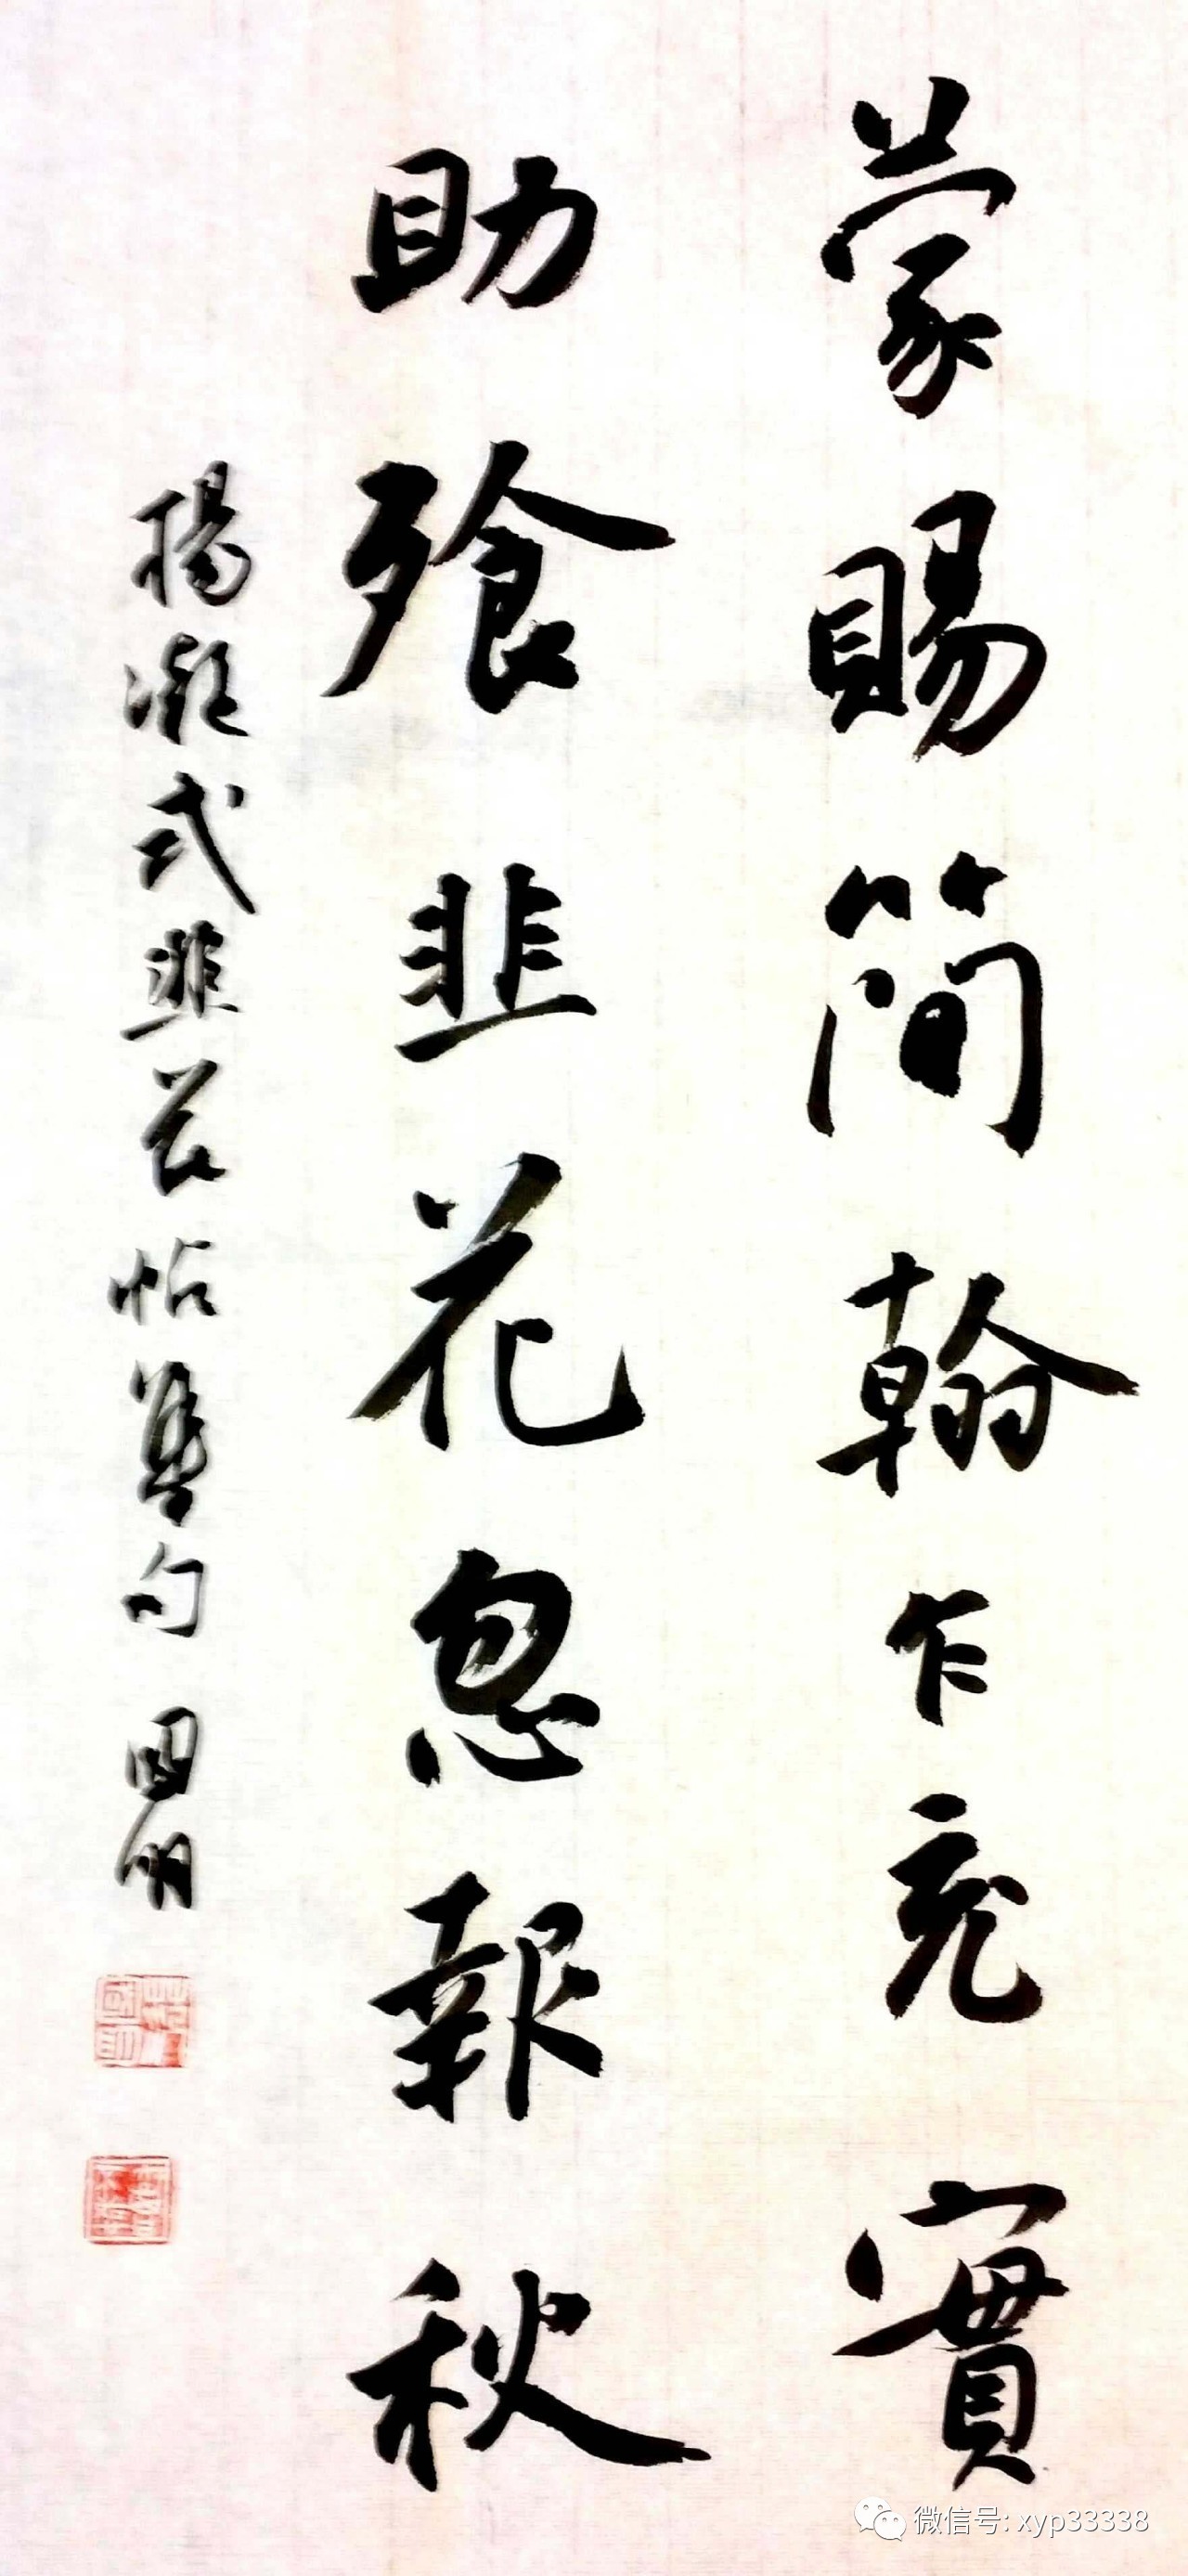 蒙賜簡翰乍充實
助飱韭花忽報秋
楊凝式韭花帖集句 国明
微信号: xyp33338